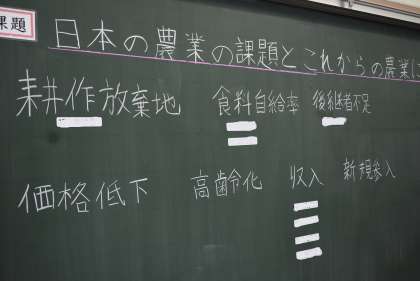 課題
日本の農業の課題とこれからの農業
耕作放棄地 食料自給率 後継者不足
価格低下 高齢化 収入 新規参入